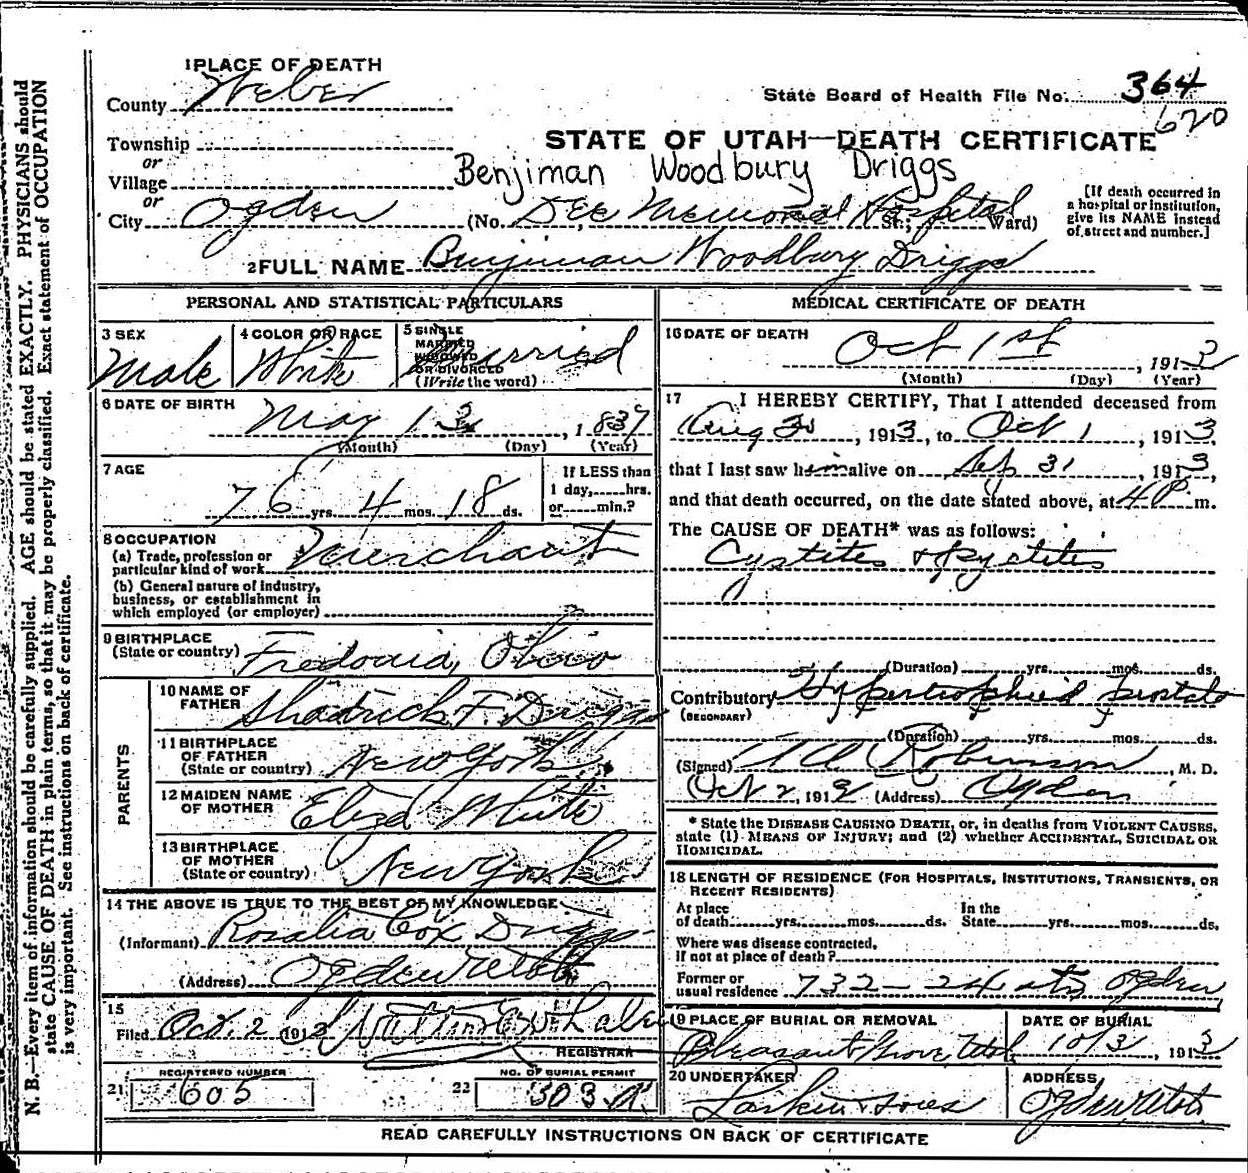 1 PLACE OF DEATH
County Weber
State Board of Health File No. 364
620
Township
or
Village
or
STATE OF UTAH—DEATH CERTIFICATE
Benjiman Woodbury Driggs
City Ogden (No. Dee Memorial Hospital St.; Ward)
[If death occurred in
a hospital or institution,
give its NAME instead
of street and number.]
2 FULL NAME Benjiman Woodbury Driggs
PERSONAL AND STATISTICAL PARTICULARS
3 SEX
Male
4 COLOR OR RACE
White
5 SINGLE
MARRIED
WIDOWED
OR DIVORCED
(Write the word)
Married
6 DATE OF BIRTH
May 13, 1837
(Month) (Day) (Year)
7 AGE
76 yrs. 4 mos. 18 ds.
If LESS than
1 day, hrs.
or min.?
8 OCCUPATION
(a) Trade, profession or
particular kind of work Merchant
(b) General nature of industry,
business, or establishment in
which employed (or employer)
9 BIRTHPLACE
(State or country) Fredonia, Ohio
PARENTS
10 NAME OF
FATHER Shadrick F. Driggs
11 BIRTHPLACE
OF FATHER
(State or country) New York
12 MAIDEN NAME
OF MOTHER Eliza White
13 BIRTHPLACE
OF MOTHER
(State or country) New York
14 THE ABOVE IS TRUE TO THE BEST OF MY KNOWLEDGE
(Informant) Rosalia Cox Driggs
(Address) Ogden Utah
15
Filed Oct. 2 1913
REGISTRAR
21 REGISTERED NUMBER
605
22 NO. OF BURIAL PERMIT
303 A
MEDICAL CERTIFICATE OF DEATH
16 DATE OF DEATH
Oct 1st, 1913
(Month) (Day) (Year)
17 I HEREBY CERTIFY, That I attended deceased from
Aug 30, 1913, to Oct 1, 1913,
that I last saw him alive on Sep 31, 1913,
and that death occurred, on the date stated above, at 4 P. m.
The CAUSE OF DEATH* was as follows:
Cystites & Pyelites
(Duration) yrs. mos. ds.
Contributory Hypertrophied prostate
(SECONDARY)
(Duration) yrs. mos. ds.
(Signed) Robinson, M. D.
Oct 2, 1913 (Address) Ogden
* State the DISEASE CAUSING DEATH, or, in deaths from VIOLENT CAUSES,
state (1) MEANS OF INJURY; and (2) whether ACCIDENTAL, SUICIDAL OR
HOMICIDAL.
18 LENGTH OF RESIDENCE (FOR HOSPITALS, INSTITUTIONS, TRANSIENTS, OR
RECENT RESIDENTS)
At place
of death yrs. mos. ds.
In the
State yrs. mos. ds.
Where was disease contracted,
if not at place of death?
Former or
usual residence 732 - 24 st Ogden
19 PLACE OF BURIAL OR REMOVAL
Pleasant Grove, Utah
DATE OF BURIAL
10/3, 1913
20 UNDERTAKER
Larkin & Sons
ADDRESS
Ogden Utah
READ CAREFULLY INSTRUCTIONS ON BACK OF CERTIFICATE
N. B.—Every item of information should be carefully supplied. AGE should be stated EXACTLY. PHYSICIANS should
state CAUSE OF DEATH in plain terms, so that it may be properly classified. Exact statement of OCCUPATION
is very important. See instructions on back of certificate.